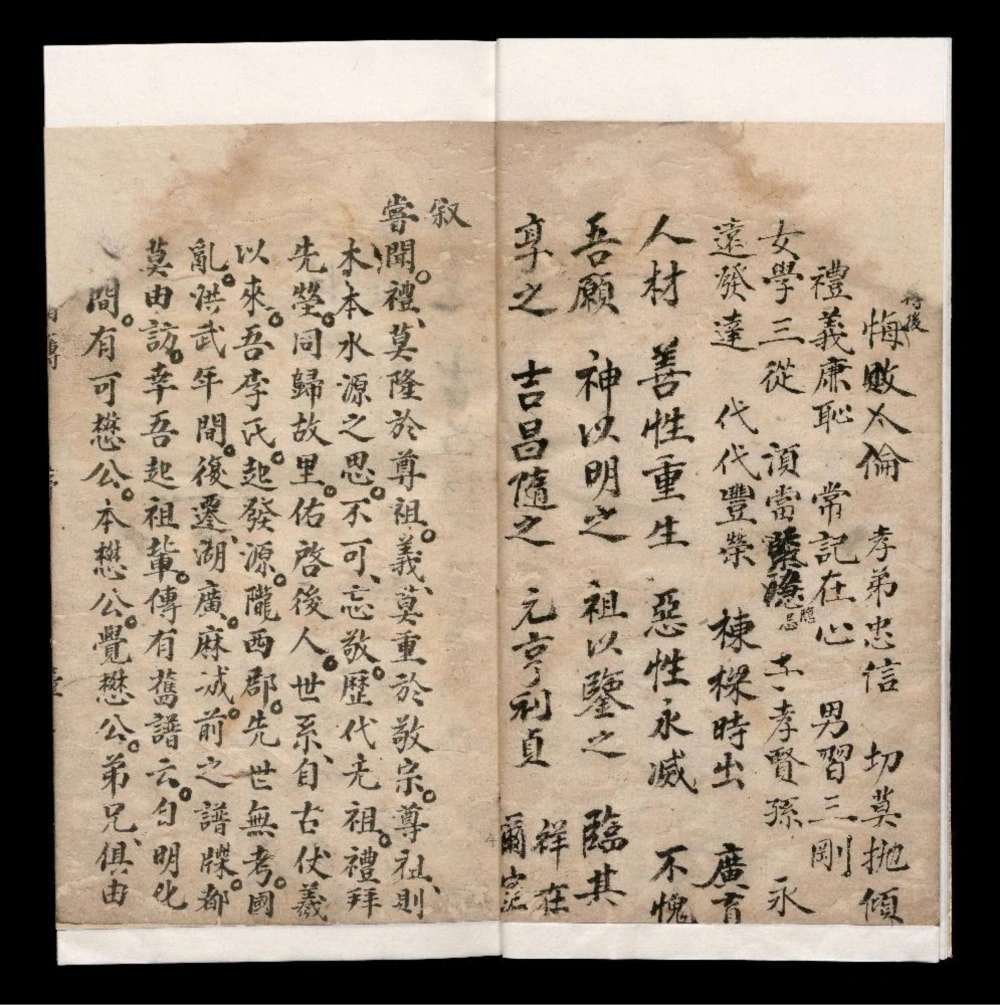 悔敗人倫 孝弟忠信 切莫抛傾
禮義廉恥 常記在心 男習三剛
女學三從 須當 孝賢孫 永
遠發達 代代豐榮 棟樑時出 廣育
人材 善性重生 惡性永滅 不愧
吾願 神以明之 祖以鑒之 臨其
享之 吉昌隨之 元亨利貞 祥在
爾
叙
嘗聞。禮、莫隆於尊祖。義、莫重於敬宗。尊祖、則
木本水源之思。不可、忘敬。歷代先祖。禮拜
先塋。同歸故里。佑啓後人。世系、自古伏羲
以來。吾李氏。起發源。隴西郡。先世無考。國
亂。洪武年間。復遷、湖廣。麻城。前之譜牒。都
莫由訪。幸吾起祖輩。傳有舊譜云。自明化
間。有可懋公。本懋公。覺懋公。弟兄、俱由